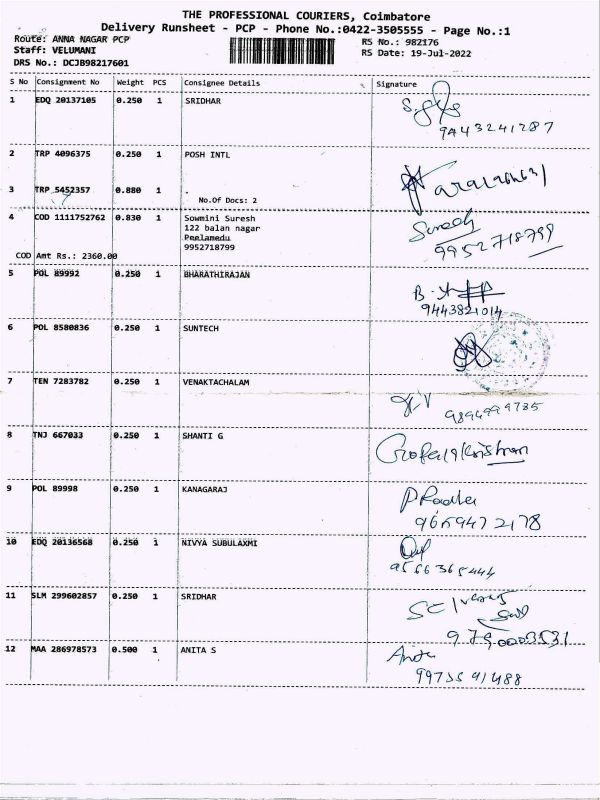 THE PROFESSIONAL COURIERS, Coimbatore
Delivery Runsheet - PCP - Phone No.:0422-3505555 - Page No.:1
Route: ANNA NAGAR PCP
RS No.: 982176
Staff: VELUMANI
RS Date: 19-Jul-2022
DRS No.: DCJB98217601
S No Consignment No Weight PCS Consignee Details Signature
1 EDQ 20137105 0.250 1 SRIDHAR
9443241287
2 TRP 4096375 0.250 1 POSH INTL
3 TRP 5452357 0.880 1 .
No.Of Docs: 2
4 COD 1111752762 0.830 1 Sowmini Suresh
Suresh
122 balan nagar
Peelamedu
9952718799
9952718799
COD Amt Rs.: 2360.00
5 POL 89992 0.250 1 BHARATHIRAJAN
9443821014
6 POL 8580836 0.250 1 SUNTECH
7 TEN 7283782 0.250 1 VENAKTACHALAM
9894999735
8 TNJ 667033 0.250 1 SHANTI G
9 POL 89998 0.250 1 KANAGARAJ
P Radha
9659472178
10 EDQ 20136568 0.250 1 NIVYA SUBULAXMI
9566365444
11 SLM 299602857 0.250 1 SRIDHAR
12 MAA 286978573 0.500 1 ANITA S
Anita